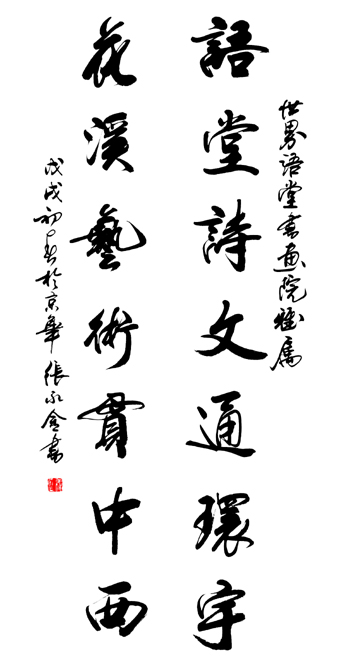 世界語堂書画院雅属
語堂詩文通環宇
花溪藝術貫中西
戊戌初春於京華張永金書